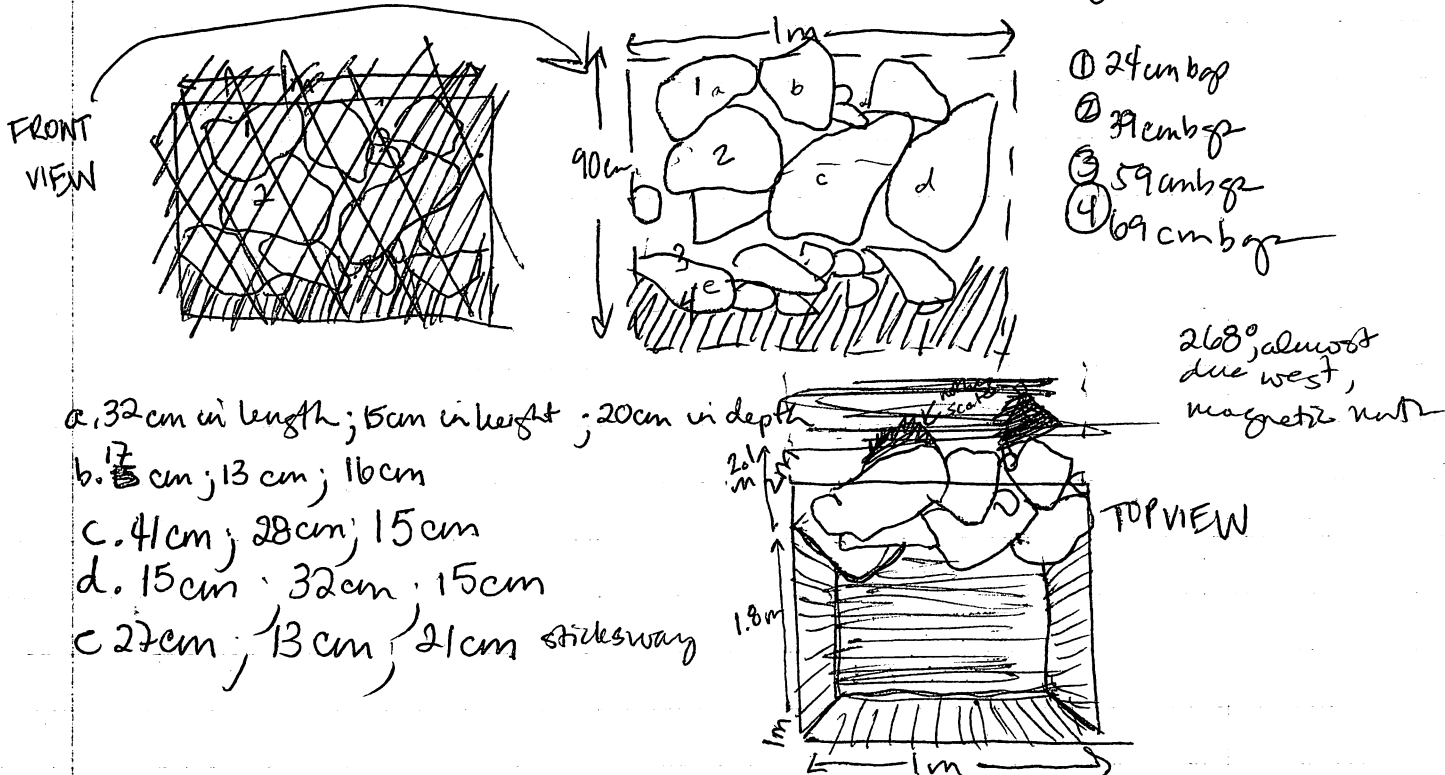 FRONT
VIEW
1m
1
2
1m
90cm
1 a
b
2
c
d
3
4 e
① 24 cmbgs
② 39 cmbgs
③ 59 cmbgs
④ 69 cmbgs
268°, almost
due west,
magnetic north
a. 32 cm in length ; 15cm in height ; 20cm in depth
b. 17 cm ; 13 cm ; 16 cm
c. 41 cm ; 28 cm ; 15 cm
d. 15 cm ; 32 cm ; 15 cm
e 27 cm ; 13 cm ; 21 cm
TOP VIEW
1.8m
1m
1m